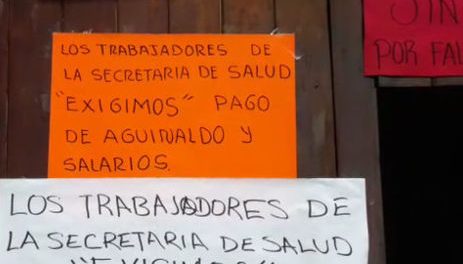 LOS TRABAJADORES DE
LA SECRETARIA DE SALUD
"EXIGIMOS" PAGO
DE AGUINALDO Y
SALARIOS.
POR FAL
LOS TRABAJADORES DE
LA SECRETARIA DE SALUD